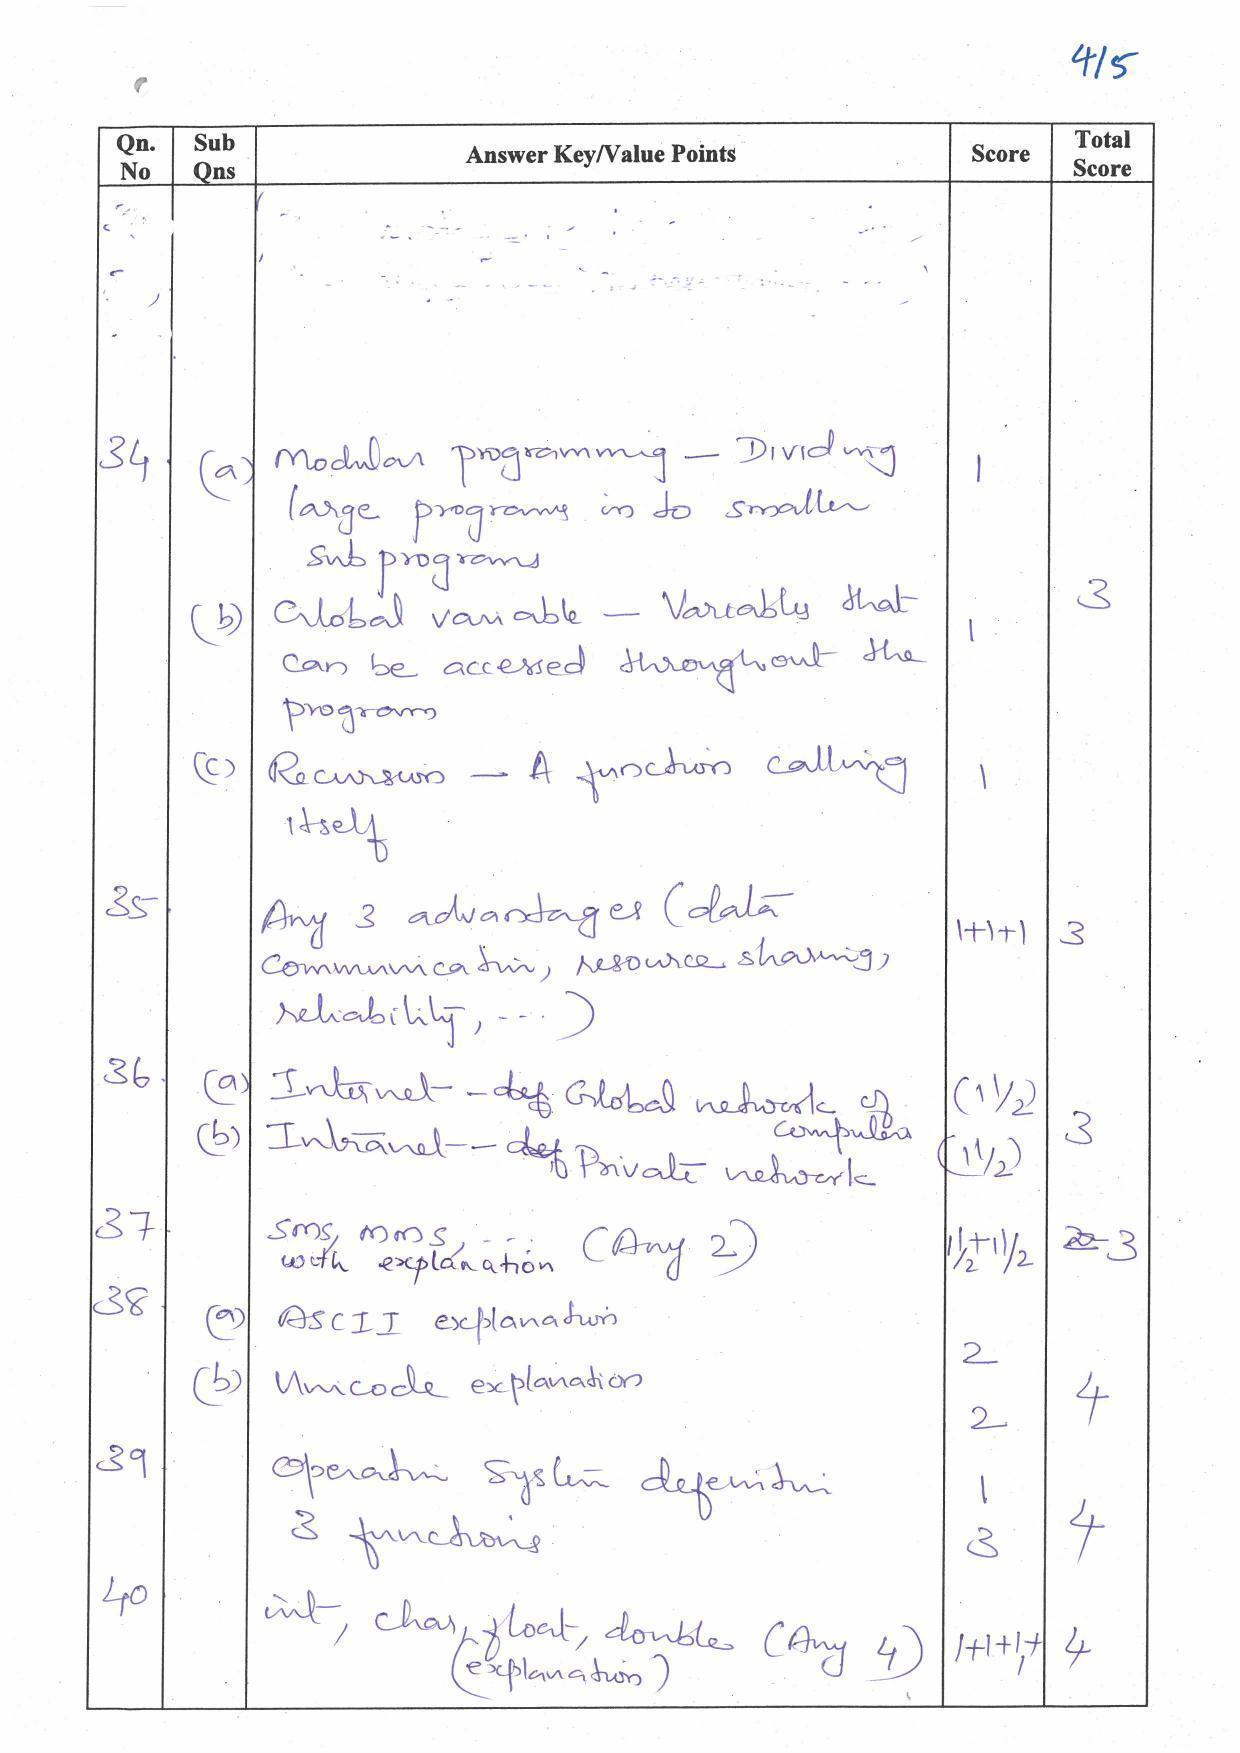 4/5
Qn. No Sub Qns Answer Key/Value Points Score Total Score
34 (a) Modular programming — Dividing 1
large programs in to smaller
sub programs
3
(b) Global variable — Variables that 1
can be accessed throughout the
program
(c) Recursion — A function calling 1
itself
35 Any 3 advantages (data 1+1+1 3
communication, resource sharing,
reliability, ---- )
36 (a) Internet — def Global network of (1 1/2)
computers
3
(b) Intranet — def Private network (1 1/2)
37 SMS, MMS, ---- (Any 2) 1 1/2 + 1 1/2 3
with explanation
38 (a) ASCII explanation 2
(b) Unicode explanation 2 4
39 Operatin System defenition 1
3 functions 3 4
40 int, char, float, double (Any 4) 1+1+1+1 4
(explanation)